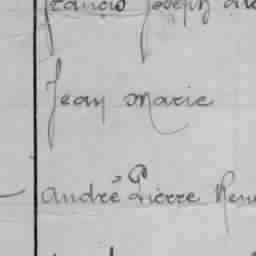 Francis Joseph
Jean Marie
André Pierre René